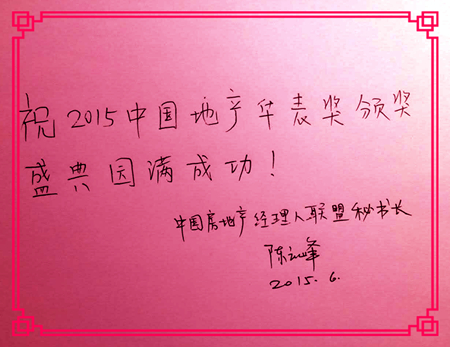 祝2015中国地产华表奖颁奖
盛典圆满成功！
中国房地产经理人联盟秘书长
陈云峰
2015.6.